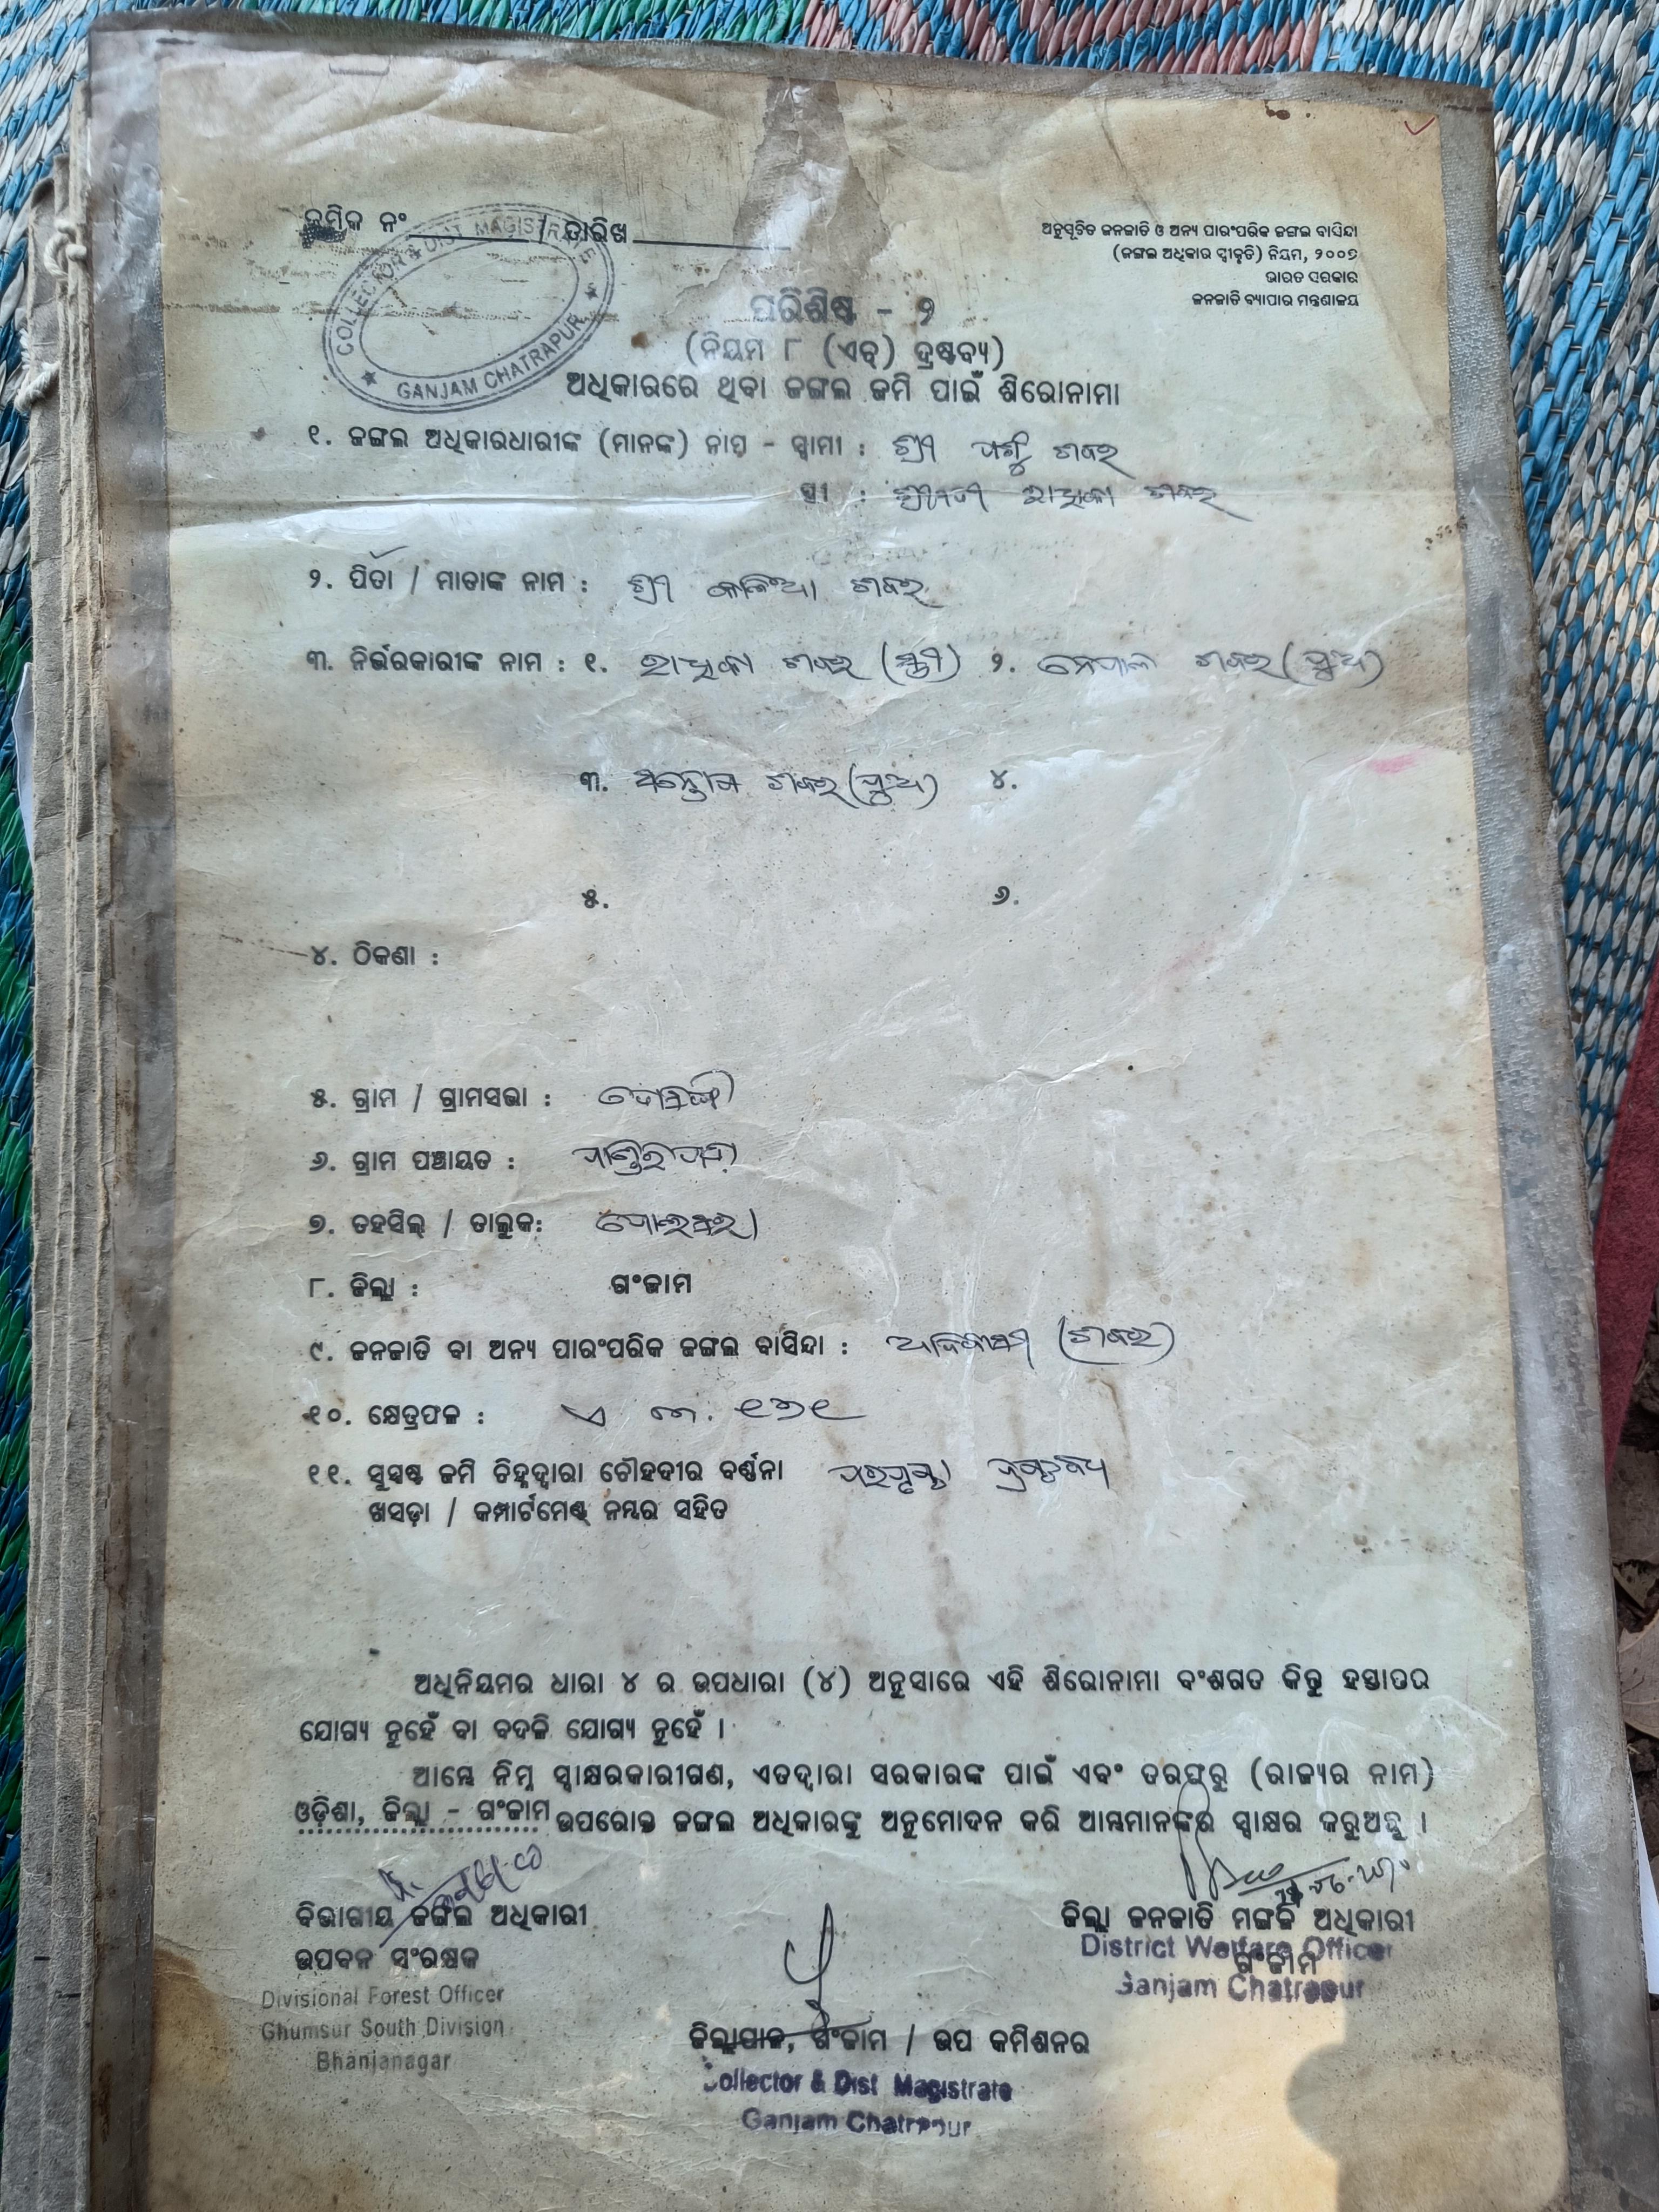 କ୍ରମିକ ନଂ / ତାରିଖ
COLLECTOR & DIST. MAGISTRATE
GANJAM CHATRAPUR
ଅନୁସୂଚିତ ଜନଜାତି ଓ ଅନ୍ୟ ପାରଂପରିକ ଜଙ୍ଗଲ ବାସିନ୍ଦା
(ଜଙ୍ଗଲ ଅଧିକାର ସ୍ୱୀକୃତି) ନିୟମ, ୨୦୦୭
ଭାରତ ସରକାର
ଜନଜାତି ବ୍ୟାପାର ମନ୍ତ୍ରଣାଳୟ
ପରିଶିଷ୍ଟ - ୨
(ନିୟମ ୮ (ଏଚ୍) ଦ୍ରଷ୍ଟବ୍ୟ)
ଅଧିକାରରେ ଥିବା ଜଙ୍ଗଲ ଜମି ପାଇଁ ଶିରୋନାମା
୧. ଜଙ୍ଗଲ ଅଧିକାରଧାରୀଙ୍କ (ମାନଙ୍କ) ନାମ - ସ୍ୱାମୀ : ଶ୍ରୀ ଶବର
ସ୍ତ୍ରୀ : ଶ୍ରୀମତୀ ରାଧିକା ଶବର
୨. ପିତା / ମାତାଙ୍କ ନାମ : ଶ୍ରୀ ଶବର
୩. ନିର୍ଭରକାରୀଙ୍କ ନାମ : ୧. ରାଧିକା ଶବର (ସ୍ତ୍ରୀ) ୨. ନେପାଳ ଶବର (ପୁଅ)
୩. ସନ୍ତୋଷ ଶବର (ପୁଅ) ୪.
୫. ୬.
୪. ଠିକଣା :
୫. ଗ୍ରାମ / ଗ୍ରାମସଭା :
୬. ଗ୍ରାମ ପଞ୍ଚାୟତ :
୭. ତହସିଲ୍ / ତାଲୁକ: ପୋଲସରା
୮. ଜିଲ୍ଲା : ଗଂଜାମ
୯. ଜନଜାତି ବା ଅନ୍ୟ ପାରଂପରିକ ଜଙ୍ଗଲ ବାସିନ୍ଦା : ଆଦିବାସୀ (ଶବର)
୧୦. କ୍ଷେତ୍ରଫଳ : ଏ
୧୧. ସୁସ୍ପଷ୍ଟ ଜମି ଚିହ୍ନଦ୍ୱାରା ଚୌହଦୀର ବର୍ଣ୍ଣନା ପରପୃଷ୍ଠା ଦ୍ରଷ୍ଟବ୍ୟ
ଖସଡ଼ା / କମ୍ପାର୍ଟମେଣ୍ଟ୍ ନମ୍ବର ସହିତ
ଅଧିନିୟମର ଧାରା ୪ ର ଉପଧାରା (୪) ଅନୁସାରେ ଏହି ଶିରୋନାମା ବଂଶଗତ କିନ୍ତୁ ହସ୍ତାନ୍ତର
ଯୋଗ୍ୟ ନୁହେଁ ବା ବଦଳି ଯୋଗ୍ୟ ନୁହେଁ ।
ଆମ୍ଭେ ନିମ୍ନ ସ୍ୱାକ୍ଷରକାରୀଗଣ, ଏତଦ୍ୱାରା ସରକାରଙ୍କ ପାଇଁ ଏବଂ ତରଫରୁ (ରାଜ୍ୟର ନାମ)
ଓଡ଼ିଶା, ଜିଲ୍ଲା - ଗଂଜାମ ଉପରୋକ୍ତ ଜଙ୍ଗଲ ଅଧିକାରଙ୍କୁ ଅନୁମୋଦନ କରି ଆମ୍ଭମାନଙ୍କର ସ୍ୱାକ୍ଷର କରୁଅଛୁ ।
ବିଭାଗୀୟ ଜଙ୍ଗଲ ଅଧିକାରୀ
ଉପବନ ସଂରକ୍ଷକ
Divisional Forest Officer
Ghumsur South Division
Bhanjanagar
ଜିଲ୍ଲା ଜନଜାତି ମଙ୍ଗଳ ଅଧିକାରୀ
ଗଂଜାମ
District Welfare Officer
Ganjam Chatrapur
ଜିଲ୍ଲାପାଳ, ଗଂଜାମ / ଉପ କମିଶନର
Collector & Dist Magistrate
Ganjam Chatrapur